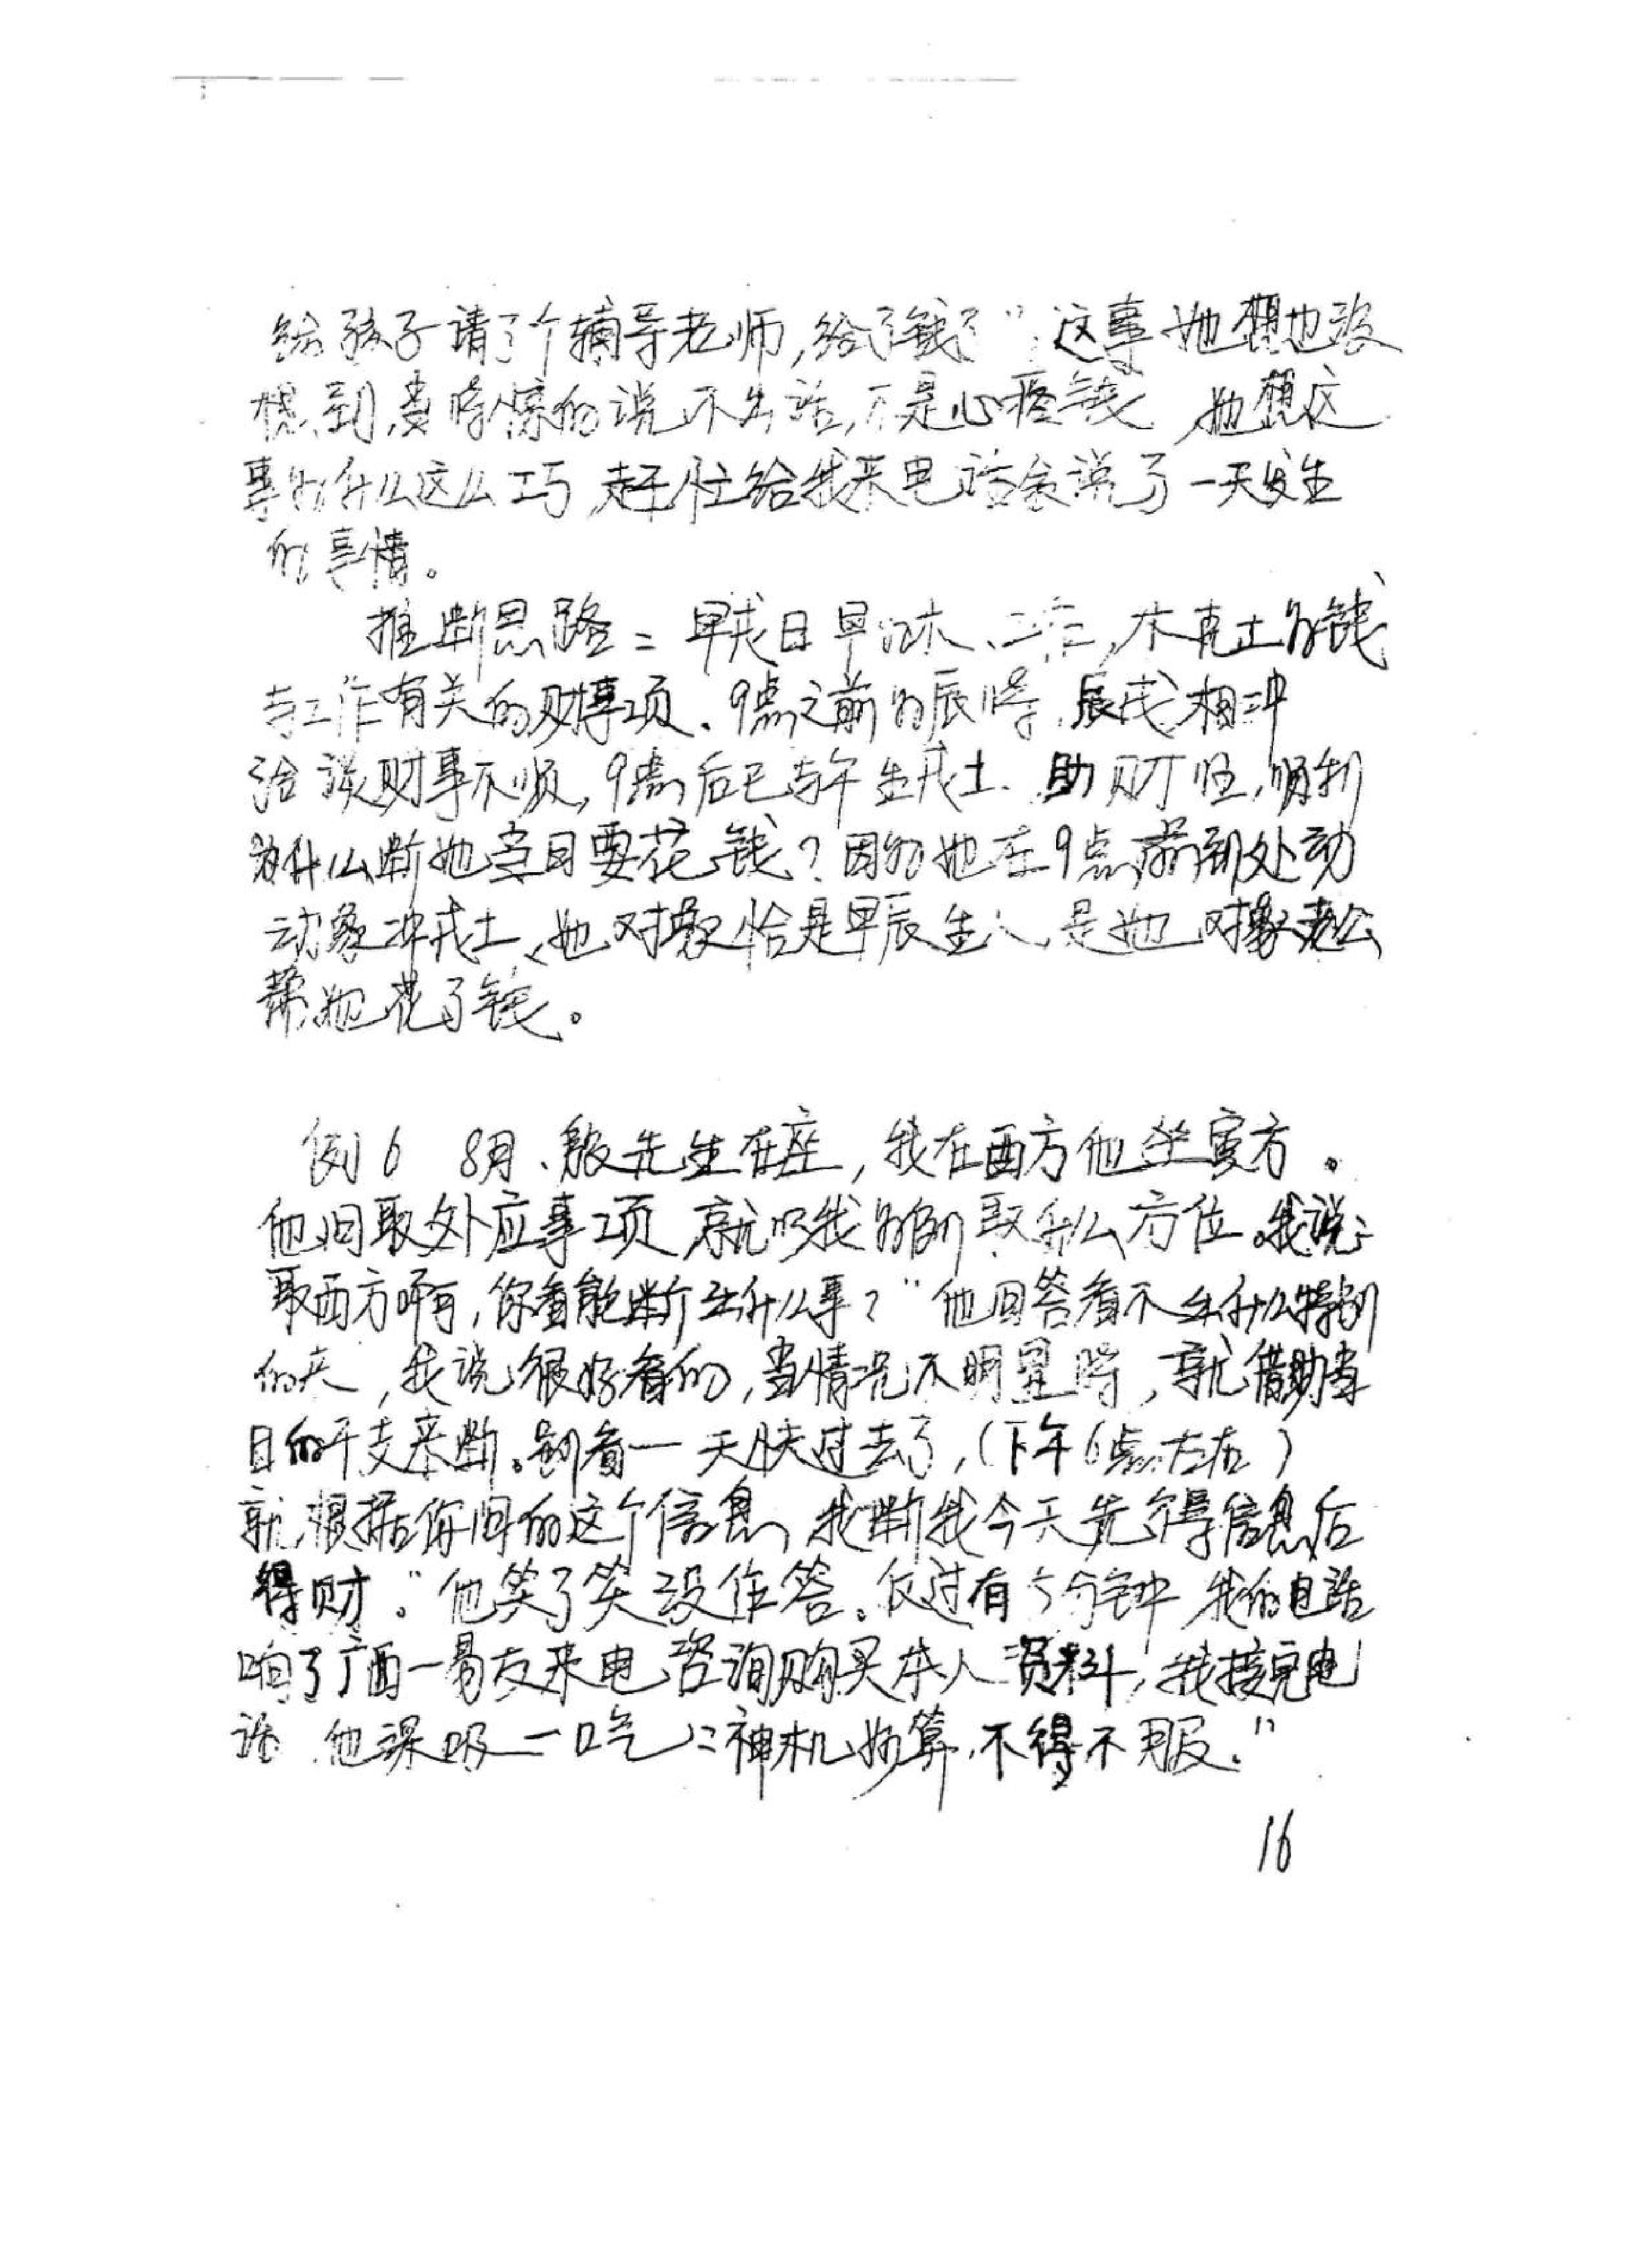 给孩子请了个辅导老师,给了钱了"这事她想也没
想到,当时惊的说不出话,不是心疼钱 她想这
事为什么这么巧,赶忙给我来电话全说了一天发生
的事情。
推断思路: 甲戌日甲为木、工作,木克土为钱
与工作有关的财事项、9点之前为辰时,辰戌相冲
洽谈财事不顺,9点后巳与午生戌土、助财旺,顺利
为什么断她当日要花钱?因为她在9点前到处动
动象冲戌土、她对象恰是甲辰生人、是她对象老公
帮她花了钱。
例6 8月、殷先生在座,我在西方他坐寅方。
他问取外应事项,就以我为例取什么方位。我说:
取西方啊,你看能断出什么事?"他回答看不出什么特别
的来,我说很好看的,当情况不明显时,就借助当
日的干支来断。别看一天快过去了,(下午6点左右)
就根据你问的这个信息,我断我今天先得信息后
得财。"他笑了笑没作答。仅过有5分钟 我的电话
响了广西一易友来电咨询购买本人资料,我接完电
话 他深吸一口气:"神机妙算,不得不服."
16